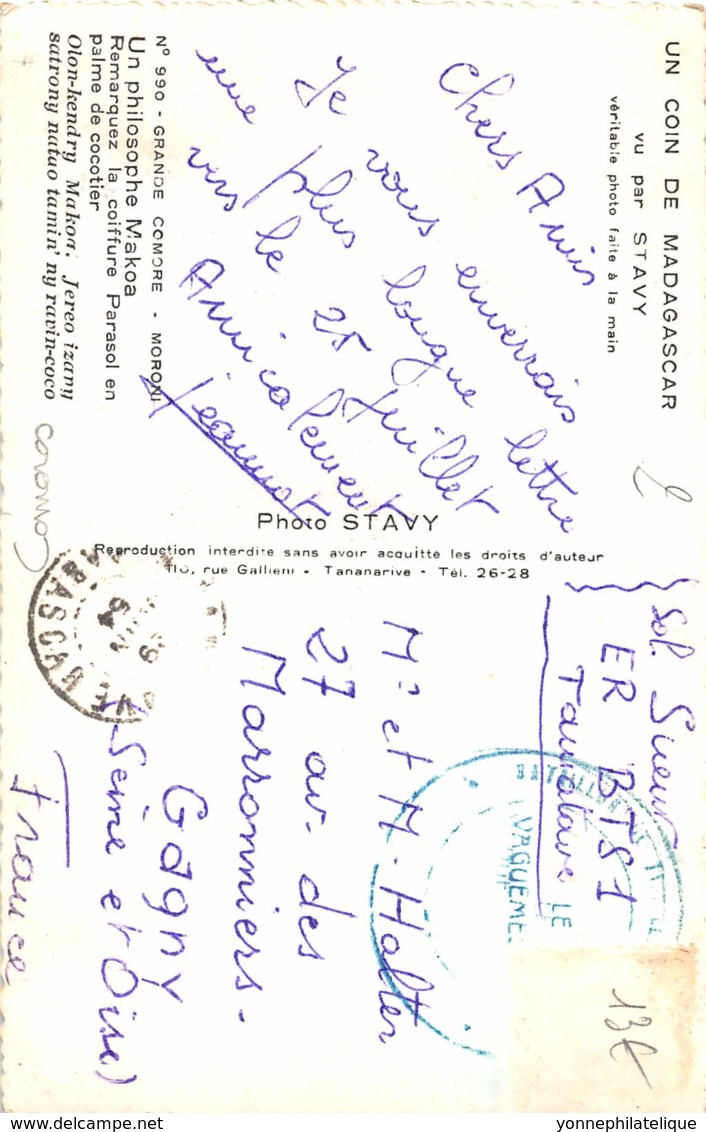 UN COIN DE MADAGASCAR
vu par STAVY
véritable photo faite à la main
Chers Amis
Je vous enverrais lettre
une plus longue
vers le 25 Juillet
Amicalement
Jeannot
N° 990 - GRANDE COMORE - MORONI
Un philosophe Makoa
Remarquez la coiffure Parasol en
palme de cocotier
Olon-kendry Makoa: Jereo izany
satrony natao tamin' ny ravin-coco
Photo STAVY
Reproduction interdite sans avoir acquitté les droits d'auteur
110, rue Gallieni - Tananarive - Tél. 26-28
Sol. Sueur
ER BTS1
Tamatave
BATAILLON DE
LE
VAGUEME
Mr et M. Halter
27 av. des
Marronniers.
Gagny
(Seine et Oise)
France
13€
yonnephilatelique